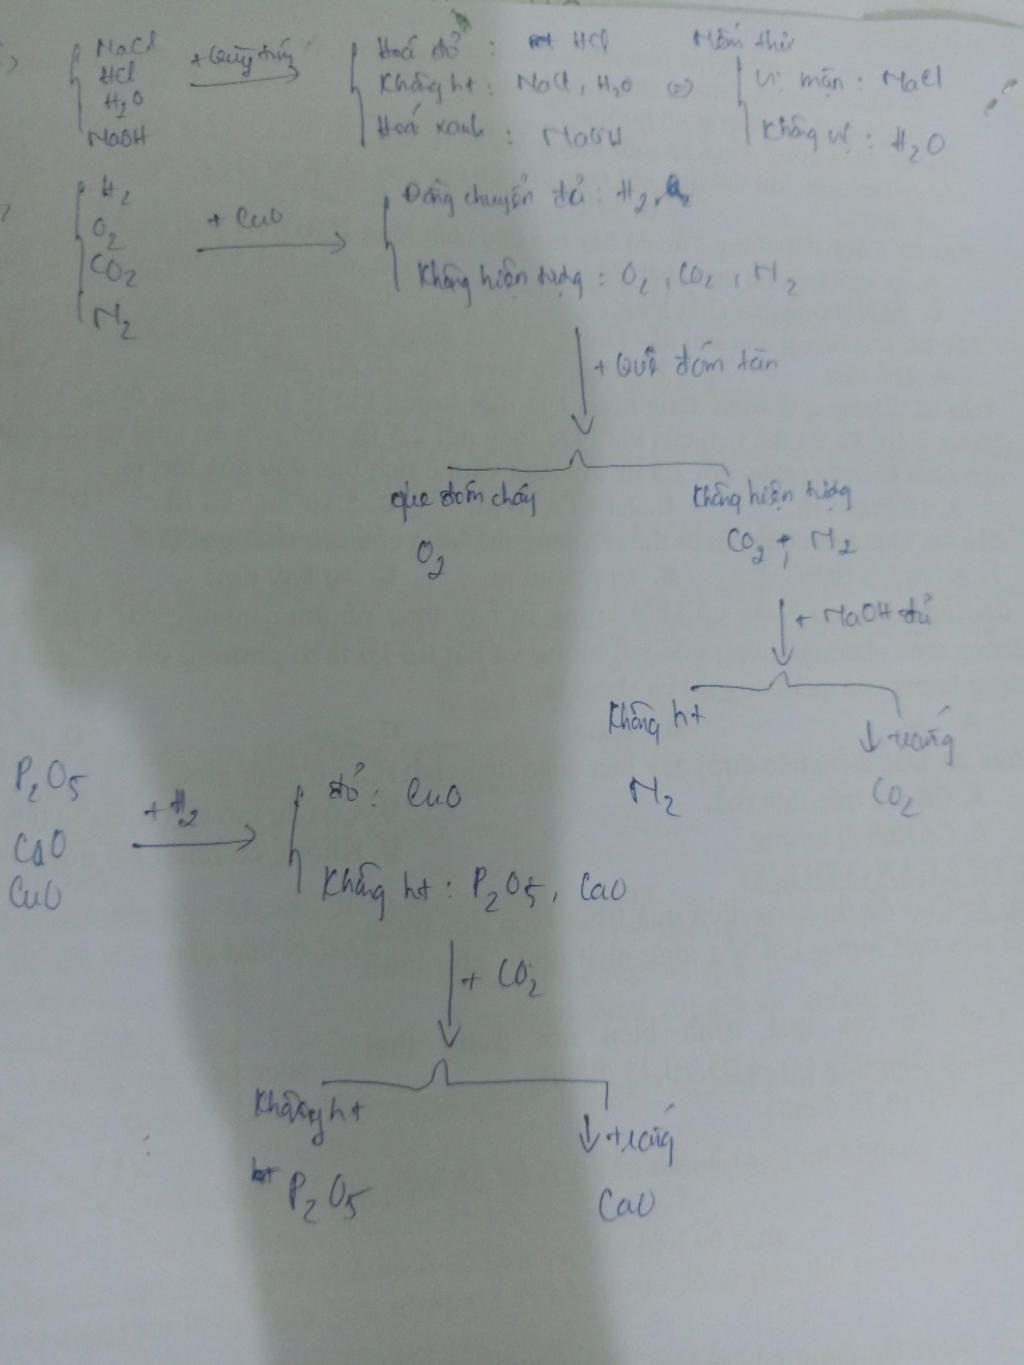 NaCl
HCl
H2O
NaOH
+ Quỳ tím
Hoá đỏ : HCl
Không ht : NaCl, H2O
Hoá xanh : NaOH
Nếm thử
Vị mặn : NaCl
Không vị : H2O
H2
O2
CO2
N2
+ CuO
Đồng chuyển đỏ : H2
Không hiện tượng : O2, CO2, N2
+ Quê đốm tàn
que đốm cháy
O2
Không hiện tượng
CO2, N2
+ NaOH đủ
Không ht
N2
↓ trắng
CO2
P2O5
CaO
CuO
+ H2
đỏ : CuO
Không ht : P2O5, CaO
+ CO2
Không ht
P2O5
↓ trắng
CaO